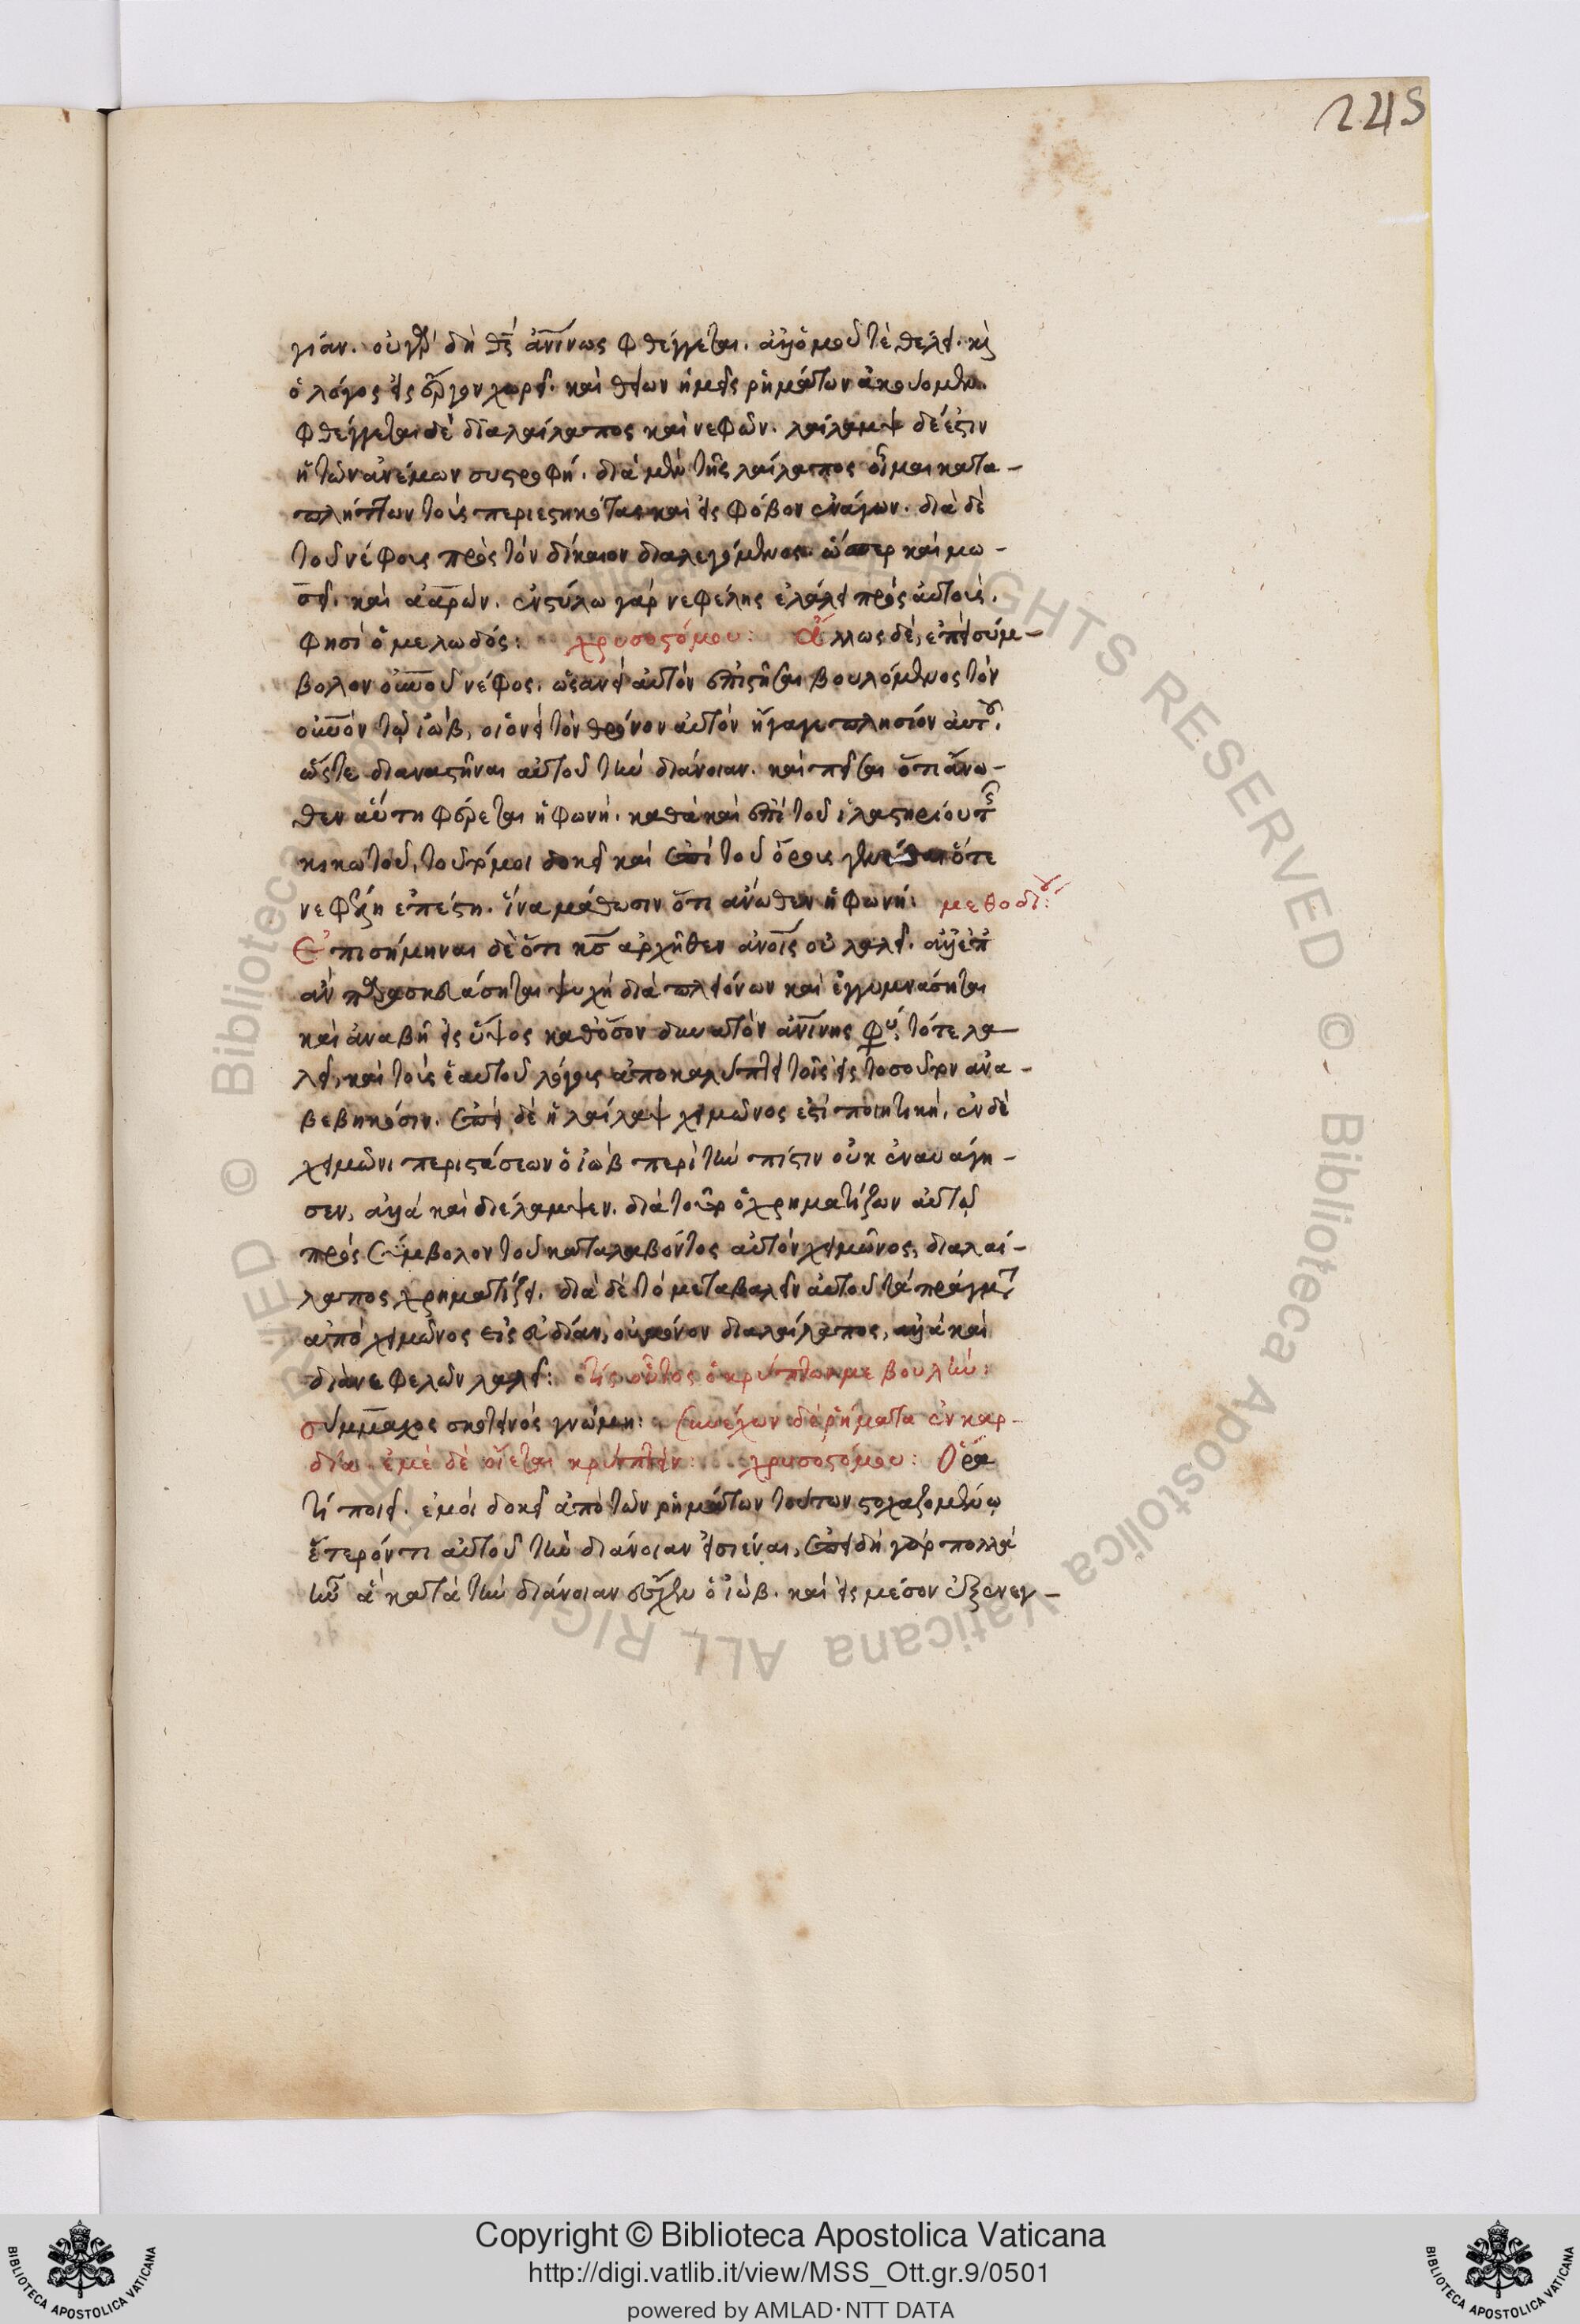 245
γίαν. οὐ γὰρ δὴ θς ἀνίνως φθέγγεται. ἀλλ' ὁμοῦ τὲ θέλει. κὶ
ὁ λόγος εἰς ἔργον χωρεῖ. καὶ θείων ἡμεῖς ῥημάτων ἀκούομεν.
φθέγγεται δὲ διαλαίλαπος καὶ νεφῶν. λαίλαμψ δέ ἐστιν
ἡ τῶν ἀνέμων συστροφή. διὰ μὲν τῆς λαίλαπος οἶμαι κατα-
πλήττων τοὺς περιεστηκότας καὶ εἰς φόβον ἐνάγων. διὰ δὲ
τοῦ νέφους πρὸς τὸν δίκαιον διαλεγόμενος ὥσπερ καὶ μω-
σῆ. καὶ ἀαρών. ἐν στύλω γὰρ νεφέλης ἐλάλει πρὸς αὐτούς.
φησὶ ὁ μελωδός: χρυσοστόμου: ἄλλως δὲ, ἐπεὶ σύμ-
βολον οὐνοῦ νέφος. ὡσανεὶ αὐτὸν ἐπιστῆσαι βουλόμενος τὸν
οὐνὸν τῷ ἰώβ, οἱονεὶ τὸν θρόνον αὐτὸν ἤγαγε πλησίον αὐτοῦ.
ὥστε διαναστῆναι αὐτοῦ τὴν διάνοιαν. καὶ πεῖσαι ὅτι ἄνω-
θεν αὕτη φέρεται ἡ φωνή. καθὰ καὶ ἐπὶ τοῦ ἱλαστηρίου τῆς
κιβωτοῦ, τοῦτό μοι δοκεῖ καὶ ἐπὶ τοῦ ὄρους γενέσθαι ὅτε
νεφέλη ἐπέστη. ἵνα μάθωσιν ὅτι ἄνωθεν ἡ φωνή: μεθοδίου:
Ἐπισήμηναι δὲ ὅτι κς ἀρχῆθεν ἀνοις οὐ λαλεῖ. ἀλλ' ἐπ
ἂν παρασκευάσηται ψυχὴ διὰ πλειόνων καὶ ἐγγυμνάσηται
καὶ ἀναβῆ εἰς ὕψος καθ' ὅσον δυνατὸν ἀνίνης φύσ τότε λα-
λεῖ, καὶ τοὺς ἑαυτοῦ λόγους ἀποκαλύπτει τοῖς εἰς τοσοῦτον ἀνα-
βεβηκόσιν. ἐπεὶ δὲ ἡ λαίλαψ χειμῶνος ἐστὶ ποιητική, ἐν δὲ
χειμῶνι περιστάσεων ὁ ἰὼβ περὶ τὴν πίστιν οὐκ ἐναυάγη-
σεν, ἀλλὰ καὶ διέλαμψεν. διὰ τοῦτο ὁ χρηματίζων αὐτῷ
πρὸς σύμβολον τοῦ καταλαβόντος αὐτὸν χειμῶνος, διαλαί-
λαπος χρηματίζει. διὰ δὲ τὸ μεταβαλεῖν αὐτοῦ τὰ πράγματ
ἀπὸ χειμῶνος εἰς εὐδίαν, οὐ μόνον διαλαίλαπος, ἀλλὰ καὶ
διὰ νεφελῶν λαλεῖ: τίς οὗτος ὁ κρύπτων με βουλήν:
σύμμαχος σκοτεινός γνώμη: συνέχων δὲ ῥήματα ἐν καρ-
δία. ἐμὲ δὲ οἴεται κρύπτειν: χρυσοστόμου: Ὅρα
τί ποιεῖ. ἐμοὶ δοκεῖ ἀπὸ τῶν ῥημάτων τούτων στοχαζομένῳ
ἕτερόν τι αὐτοῦ τὴν διάνοιαν εἰσιέναι, ἐπειδὴ γὰρ πολλὰ
ἦν ἃ κατὰ τὴν διάνοιαν εἶχεν ὁ ἰώβ. καὶ εἰς μέσον ἐξενεγ-
© Biblioteca Apostolica Vaticana ALL RIGHTS RESERVED
Copyright © Biblioteca Apostolica Vaticana
http://digi.vatlib.it/view/MSS_Ott.gr.9/0501
powered by AMLAD·NTT DATA
BIBLIOTECA APOSTOLICA VATICANA
BIBLIOTECA APOSTOLICA VATICANA